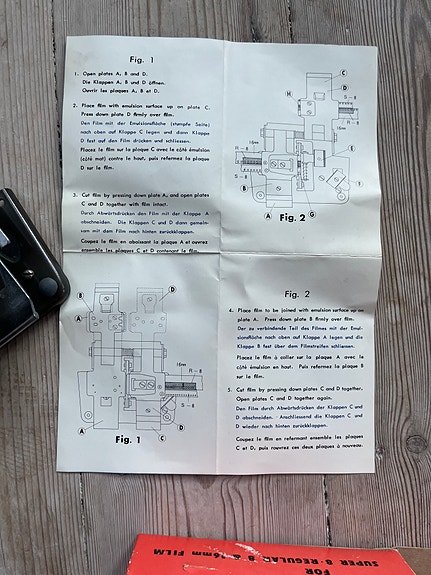 Fig. 1
1. Open plates A, B and D.
Die Klappen A, B und D öffnen.
Ouvrir les plaques A, B et D.
2. Place film with emulsion surface up on plate C.
Press down plate D firmly over film.
Den Film mit der Emulsionsfläche (stumpfe Seite)
nach oben auf Klappe C legen und dann Klappe
D fest auf den Film drücken und schliessen.
Placez le film sur la plaque C avec le côté émulsion
(côté mat) contre le haut, puis refermez la plaque
D sur le film.
3. Cut film by pressing down plate A, and open plates
C and D together with film intact.
Durch Abwärtsdrücken den Film mit der Klappe A
abschneiden. Die Klappen C und D dann gemein-
sam mit dem Film nach hinten zurückklappen.
Coupez le film en abaissant la plaque A et ouvrez
ensemble les plaques C et D contenant le film.
B
D
A
16mm
R — 8
S — 8
A
Fig. 1
C
D
C
D
H
S — 8
R — 8
16mm
16mm
R — 8
E
S — 8
F
B
A
G
Fig. 2
Fig. 2
4. Place film to be joined with emulsion surface up on
plate A. Press down plate B firmly over film.
Der zu verbindende Teil des Filmes mit der Emul-
sionsfläche nach oben auf Klappe A legen und die
Klappe B fest über dem Filmstreifen schliessen.
Placez le film à coller sur la plaque A avec le
côté émulsion en haut. Puis refermez la plaque B
sur le film.
5. Cut film by pressing down plates C and D together.
Open plates C and D together again.
Den Film durch Abwärtsdrücken der Klappen C und
D abschneiden. Anschliessend die Klappen C und
D wieder nach hinten zurückklappen.
Coupez le film en refermant ensemble les plaques
C et D, puis rouvrez ces deux plaques à nouveau.
FOR
SUPER 8 · REGULAR 8 & 16mm FILM